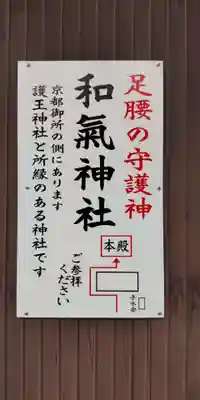 足腰の守護神
和氣神社
京都御所の側にあります
護王神社と所縁のある神社です
ご参拝
ください
本殿
手水舎